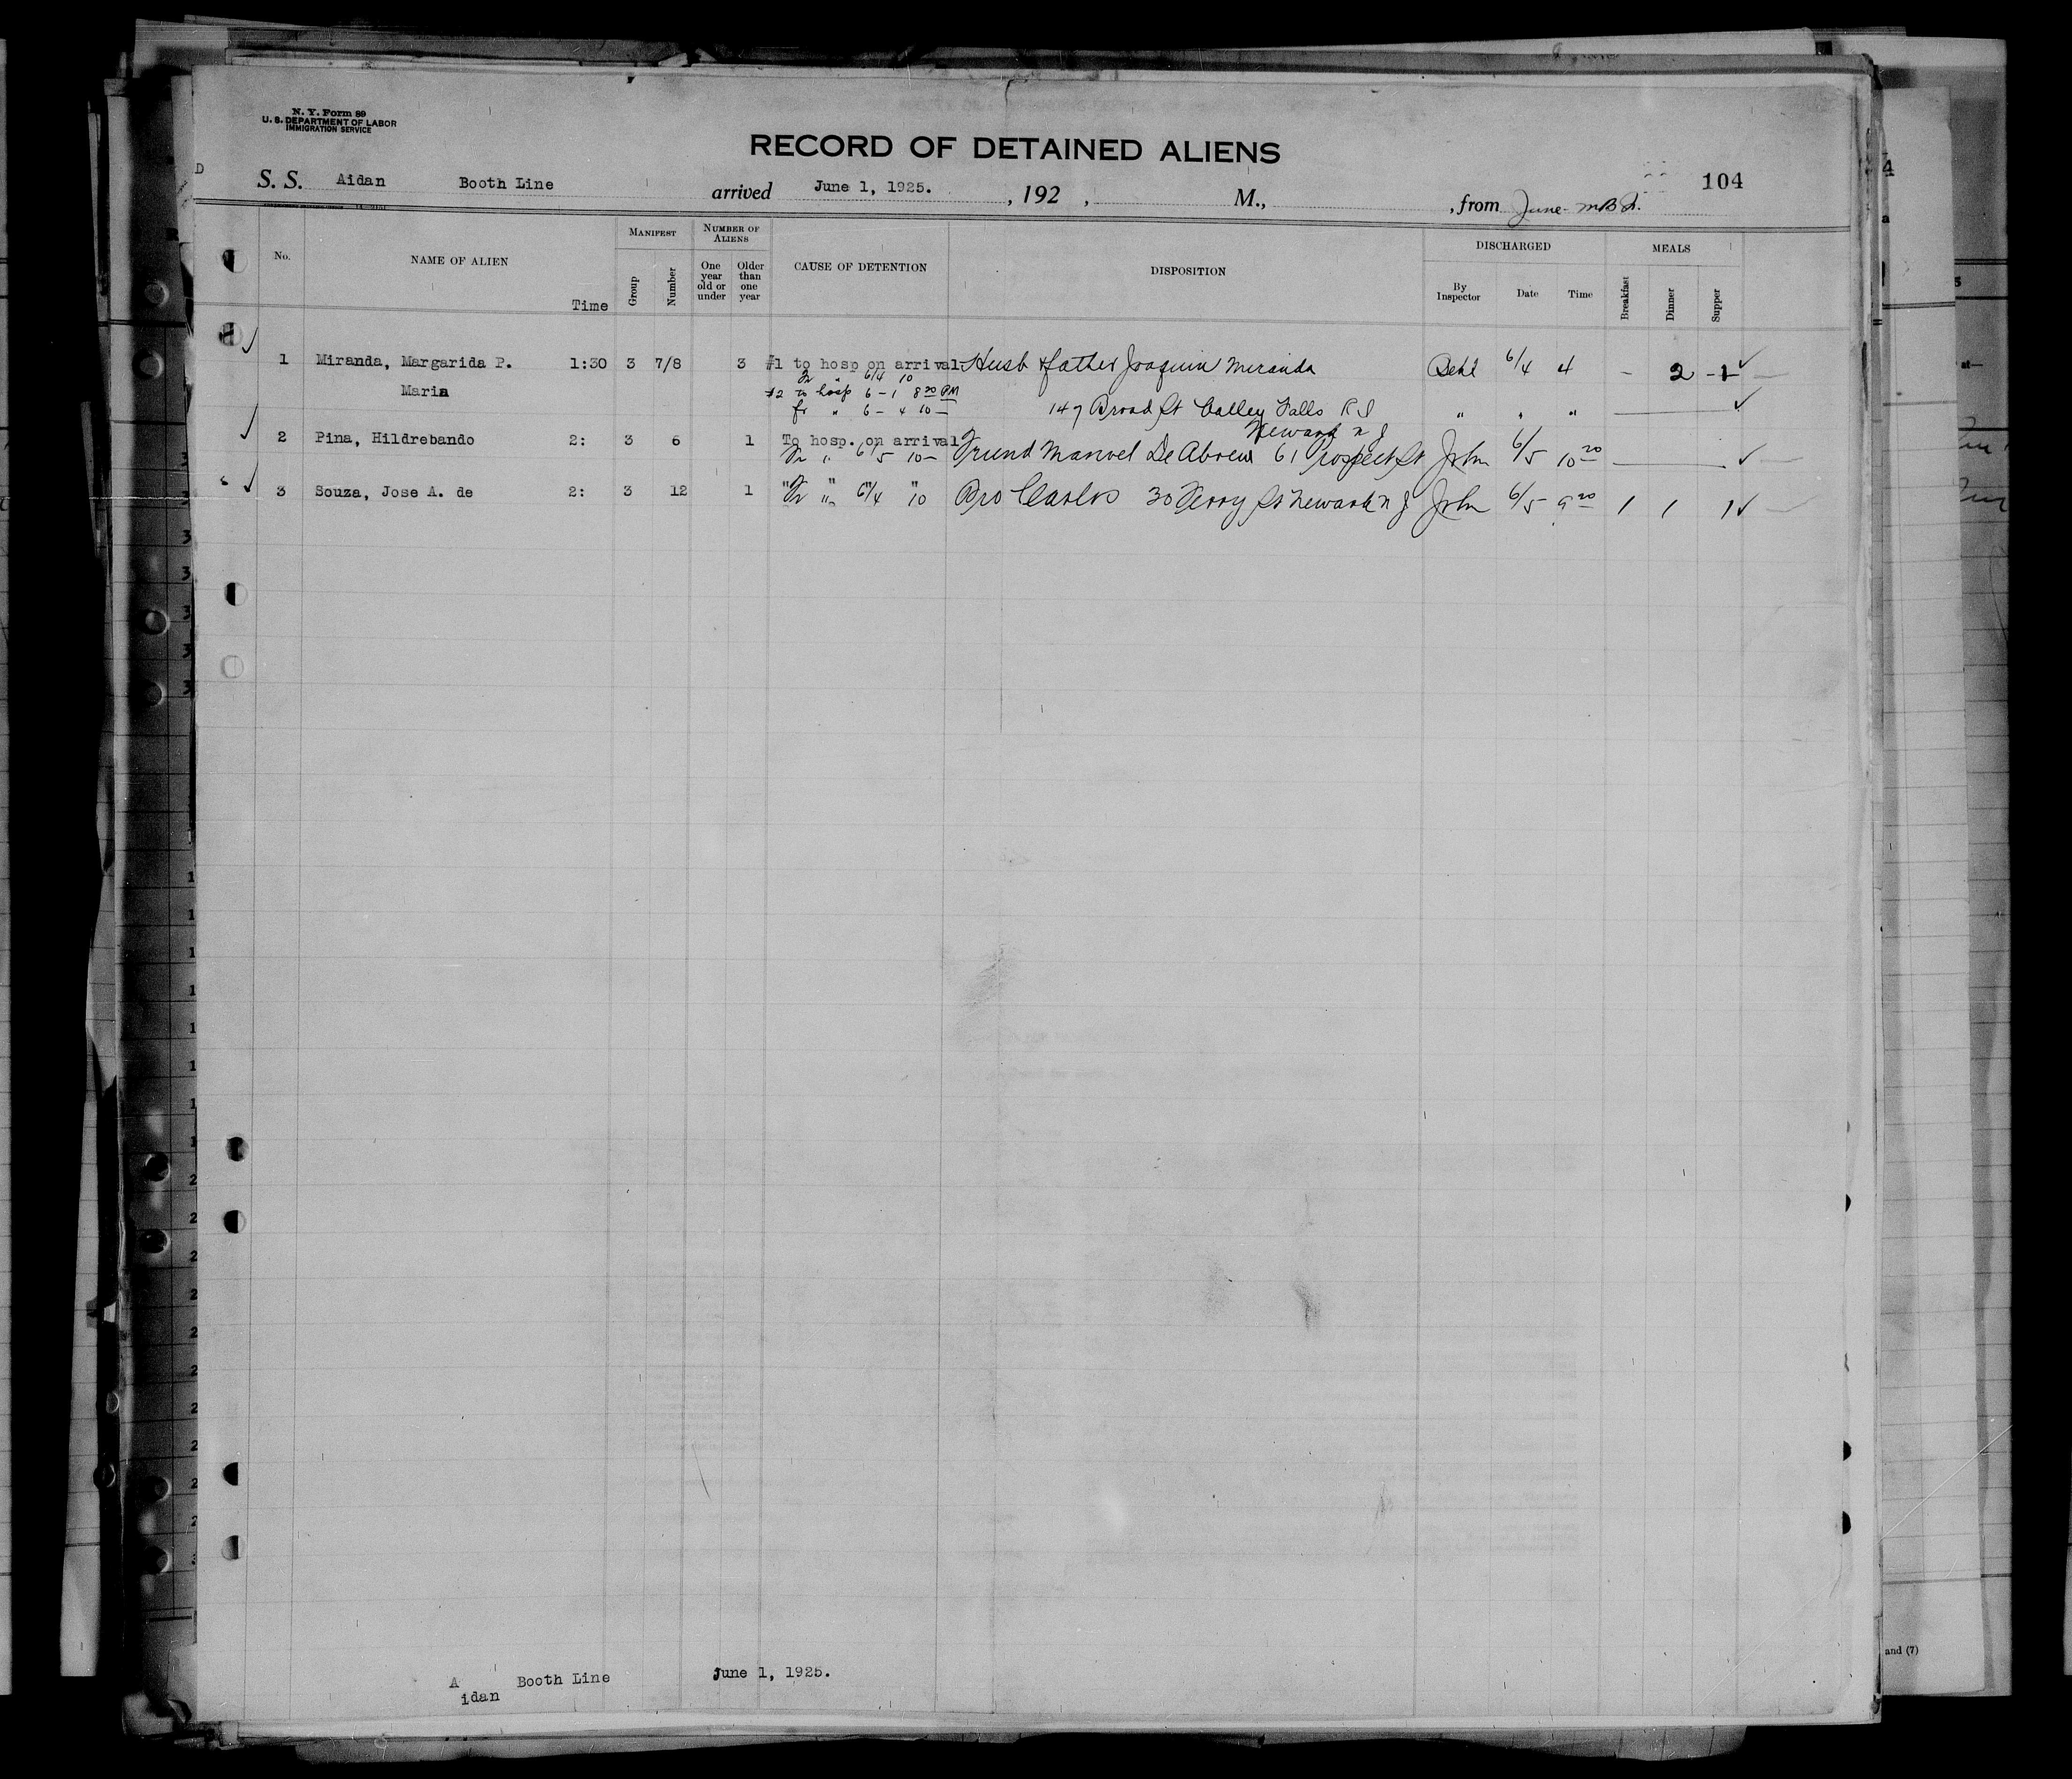 N. Y. Form 89
U. S. DEPARTMENT OF LABOR
IMMIGRATION SERVICE
RECORD OF DETAINED ALIENS
S. S. Aidan Booth Line arrived June 1, 1925. , 192 , M., , from June
104
No. NAME OF ALIEN Time MANIFEST Group Number NUMBER OF ALIENS One year old or under Older than one year CAUSE OF DETENTION DISPOSITION DISCHARGED By Inspector Date Time MEALS Breakfast Dinner Supper
1 Miranda, Margarida P. 1:30 3 7/8 3 #1 to hosp on arrival Husb & father Joaquin Miranda 6/4 4 - 2 -1
Fr " 6/4 10
Maria #2 to hosp 6-1 8 20 PM
fr " 6-4 10- 147 Broad St Valley Falls R I " " "
2 Pina, Hildrebando 2: 3 6 1 To hosp. on arrival Newark N J
Fr " 6/5 10- Friend Manoel De Abreu 61 Prospect St John 6/5 10 20
3 Souza, Jose A. de 2: 3 12 1 " " " "
Fr " 6/4 10 Bro Carlos 30 Ferry St Newark N J John 6/5 9 20 1 1 1
Aidan Booth Line June 1, 1925.
and (7)